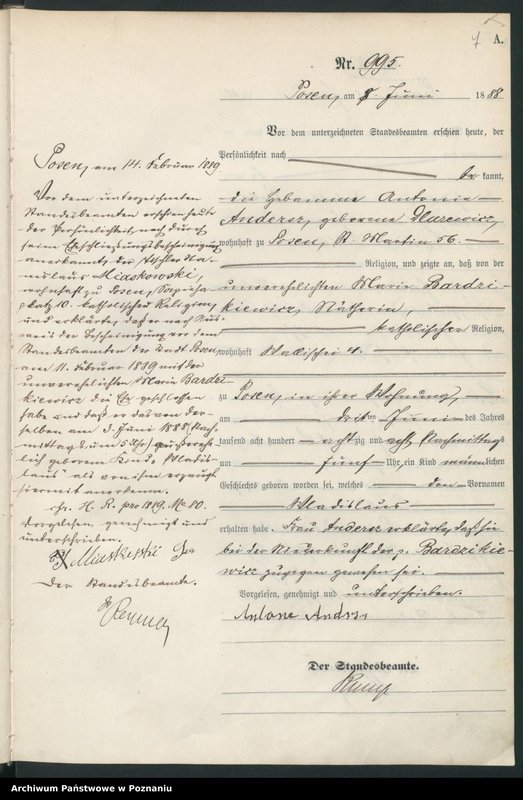 7 A.
Nr. 995.
Posen, am 8 Juni 1888
Vor dem unterzeichneten Standesbeamten erschien heute, der
Persönlichkeit nach
be kannt,
die Hebamme Antonie
Andersz, geborene
wohnhaft zu Posen, St. Martin 56.
Religion, und zeigte an, daß von der
unverehelichten Marie Bardzi-
kiewicz, Nätherin,
katholischer Religion,
wohnhaft Wallischei 4.
zu Posen, in ihrer Wohnung,
am dritten Juni des Jahres
tausend acht hundert achtzig und acht Nachmittags
um fünf Uhr, ein Kind männlichen
Geschlechts geboren worden sei, welches den Vornamen
Wladislaus
erhalten habe. Frau Andersz erklärte, daß sie
bei der Niederkunft der p. Bardzikie-
wicz zugegen gewesen sei.
Vorgelesen, genehmigt und unterschrieben.
Antone Andrs
Der Standesbeamte.
Posen, am 14. Februar 1889
Vor dem unterzeichneten
Standesbeamten erschien heute
der Persönlichkeit nach durch
seine Eheschließungsbescheinigung
anerkannt, der Tischler Sta-
nislaus Miaskowski,
wohnhaft zu Posen, Sapieha-
platz 10. katholischer Religion,
und erklärte, daß er nach Aus-
weis der Bescheinigung vor dem
Standesbeamten der Stadt Posen
am 11. Februar 1889 mit der
unverehelichten Marie Bardzi-
kiewicz die Ehe geschlossen
habe und daß er das von der-
selben am 3. Juni 1888 (Nach-
mittags um 5 Uhr) außerehe-
lich geborene Kind "Wladis-
laus" als von ihm erzeugt
hiermit anerkenne.
H. R. pro 1889. No 80.
Vorgelesen, genehmigt und
unterschrieben.
Miaskoski
Der Standesbeamte.
Archiwum Państwowe w Poznaniu